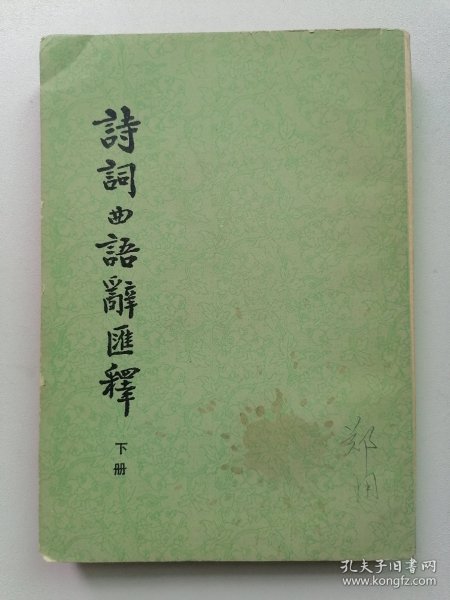 詩詞曲語辭匯釋
下册
郑用
孔夫子旧书网
www.kongfz.com